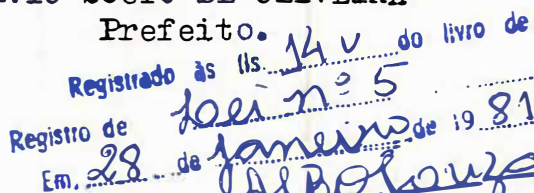 Prefeito.
Registrado às fls. 14 v do livro de
Registro de Lei nº 5
Em, 28 de janeiro de 19 81